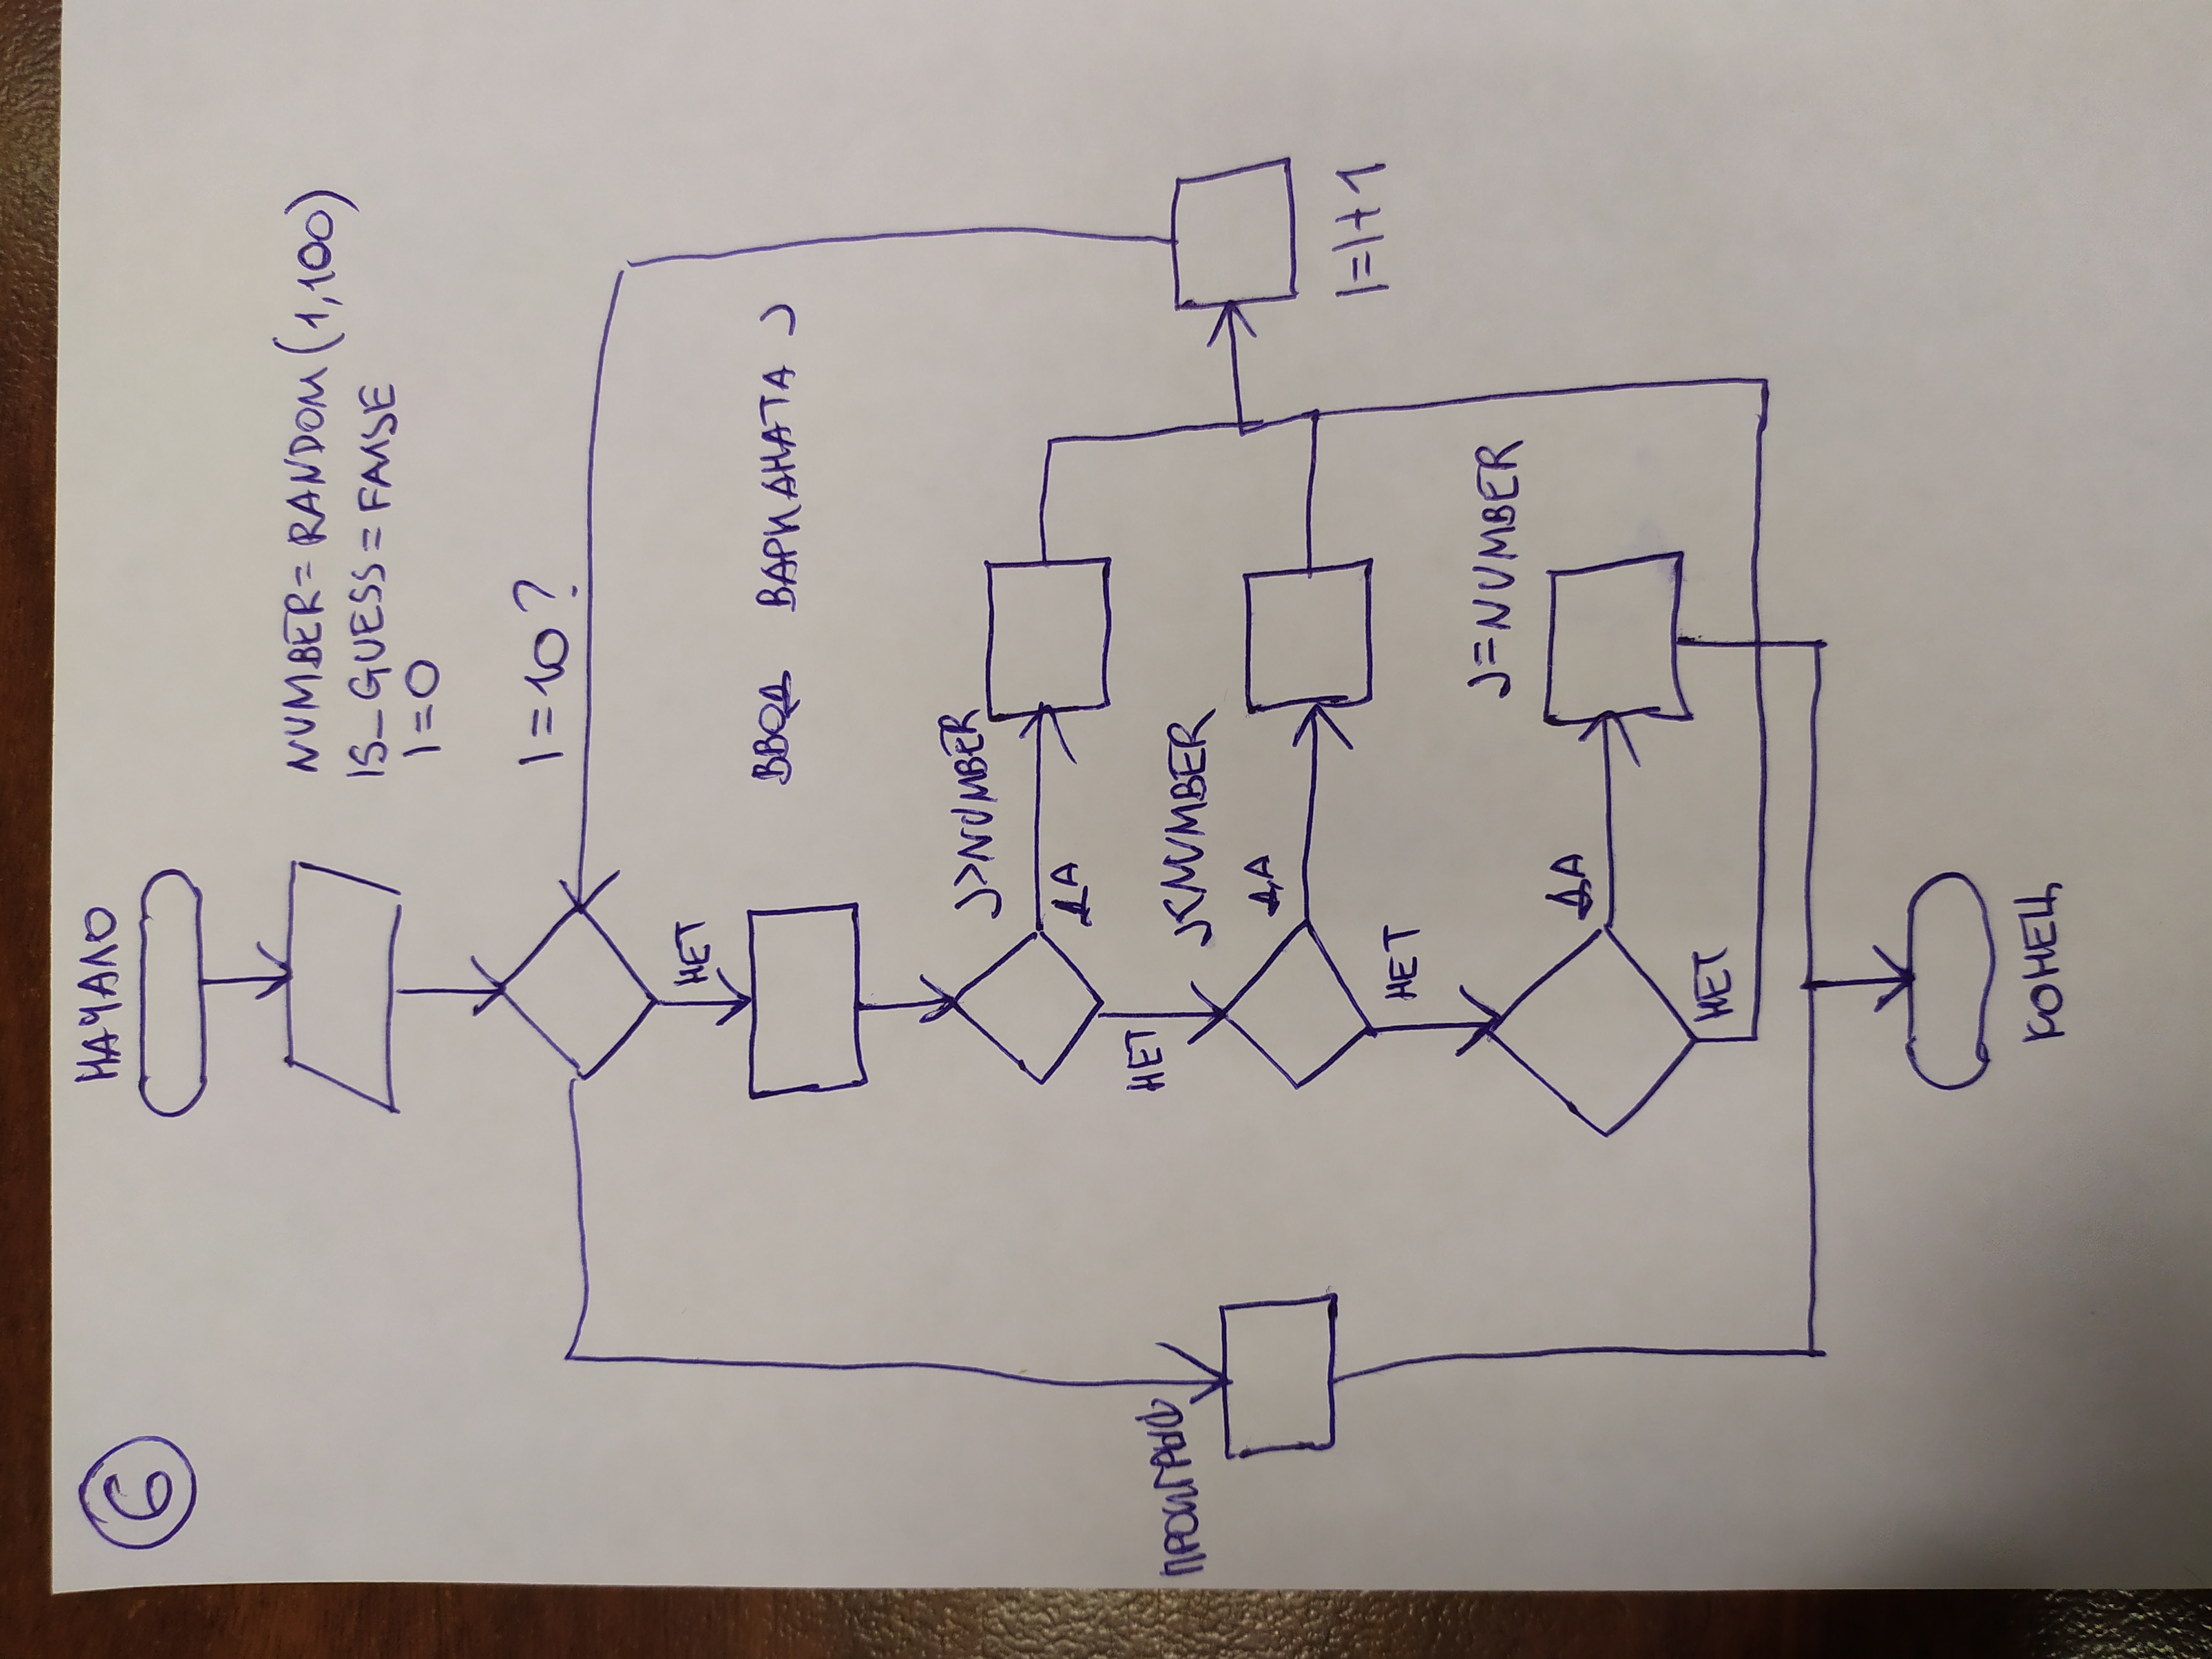 6
НАЧАЛО
NUMBER=RANDOM(1,100)
IS_GUESS=FALSE
I=0
I=10?
НЕТ
ВВОД ВАРИАНАТА J
J>NUMBER
ДА
НЕТ
ПРОИГРЫШ
J<NUMBER
ДА
I=I+1
НЕТ
J=NUMBER
ДА
НЕТ
КОНЕЦ